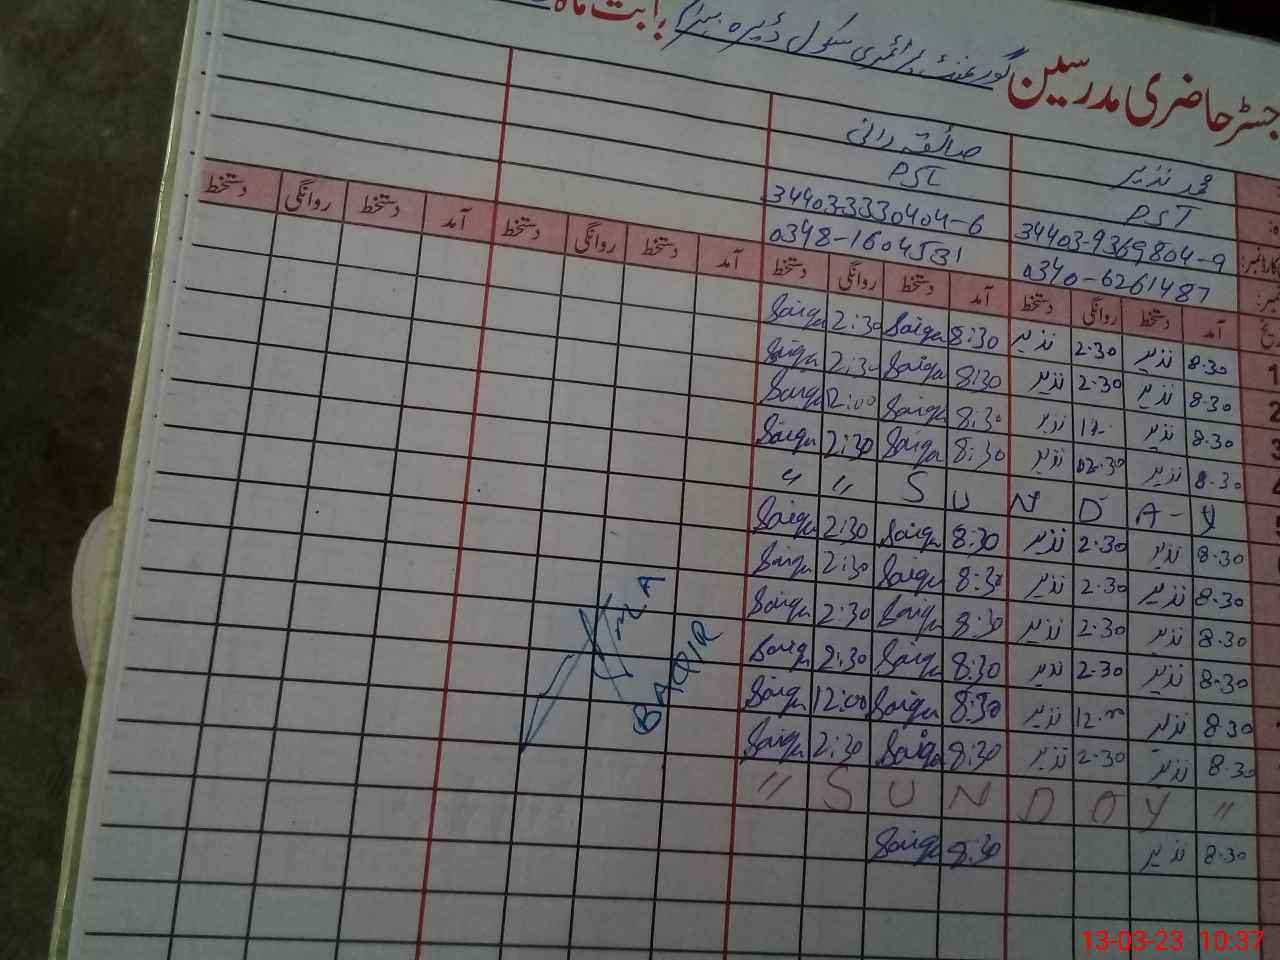 جسٹر حاضری مدرسین گورنمنٹ پرائمری سکول ڈیرہ بابت ماہ
محمد نذیر صائقہ رانی
PST PST
34403-9369804-9 3440333330404-6
0340-6261487 0348-1604531
آمد دستخط روانگی دستخط آمد دستخط روانگی دستخط آمد دستخط روانگی دستخط آمد دستخط روانگی دستخط
1 8.30 نذیر 2.30 نذیر 8:30 Saiqa 2:30 Saiqa
2 8.30 نذیر 2.30 نذیر 8:30 Saiqa 2:30 Saiqa
3 8.30 نذیر 12. نذیر 8:30 Saiqa 12:00 Saiqa
8.30 نذیر 02.30 نذیر 8:30 Saiqa 2:30 Saiqa
" " S U N D A - Y
8.30 نذیر 2.30 نذیر 8:30 Saiqa 2:30 Saiqa
8.30 نذیر 2.30 نذیر 8:30 Saiqa 2:30 Saiqa
8.30 نذیر 2.30 نذیر 8:30 Saiqa 2:30 Saiqa
8.30 نذیر 2.30 نذیر 8:30 Saiqa 2:30 Saiqa
8.30 نذیر 12.00 نذیر 8:30 Saiqa 12:00 Saiqa
8.30 نذیر 2.30 نذیر 8:30 Saiqa 2:30 Saiqa
" S U N D A Y "
8.30 نذیر 8:30 Saiqa
MEA
BAQIR
13-03-23 10:37